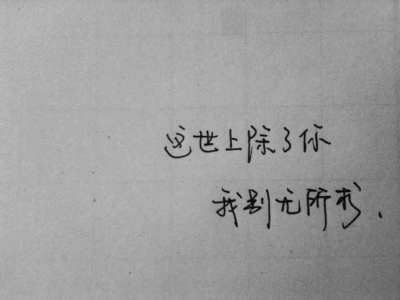 这世上除了你
我别无所求、